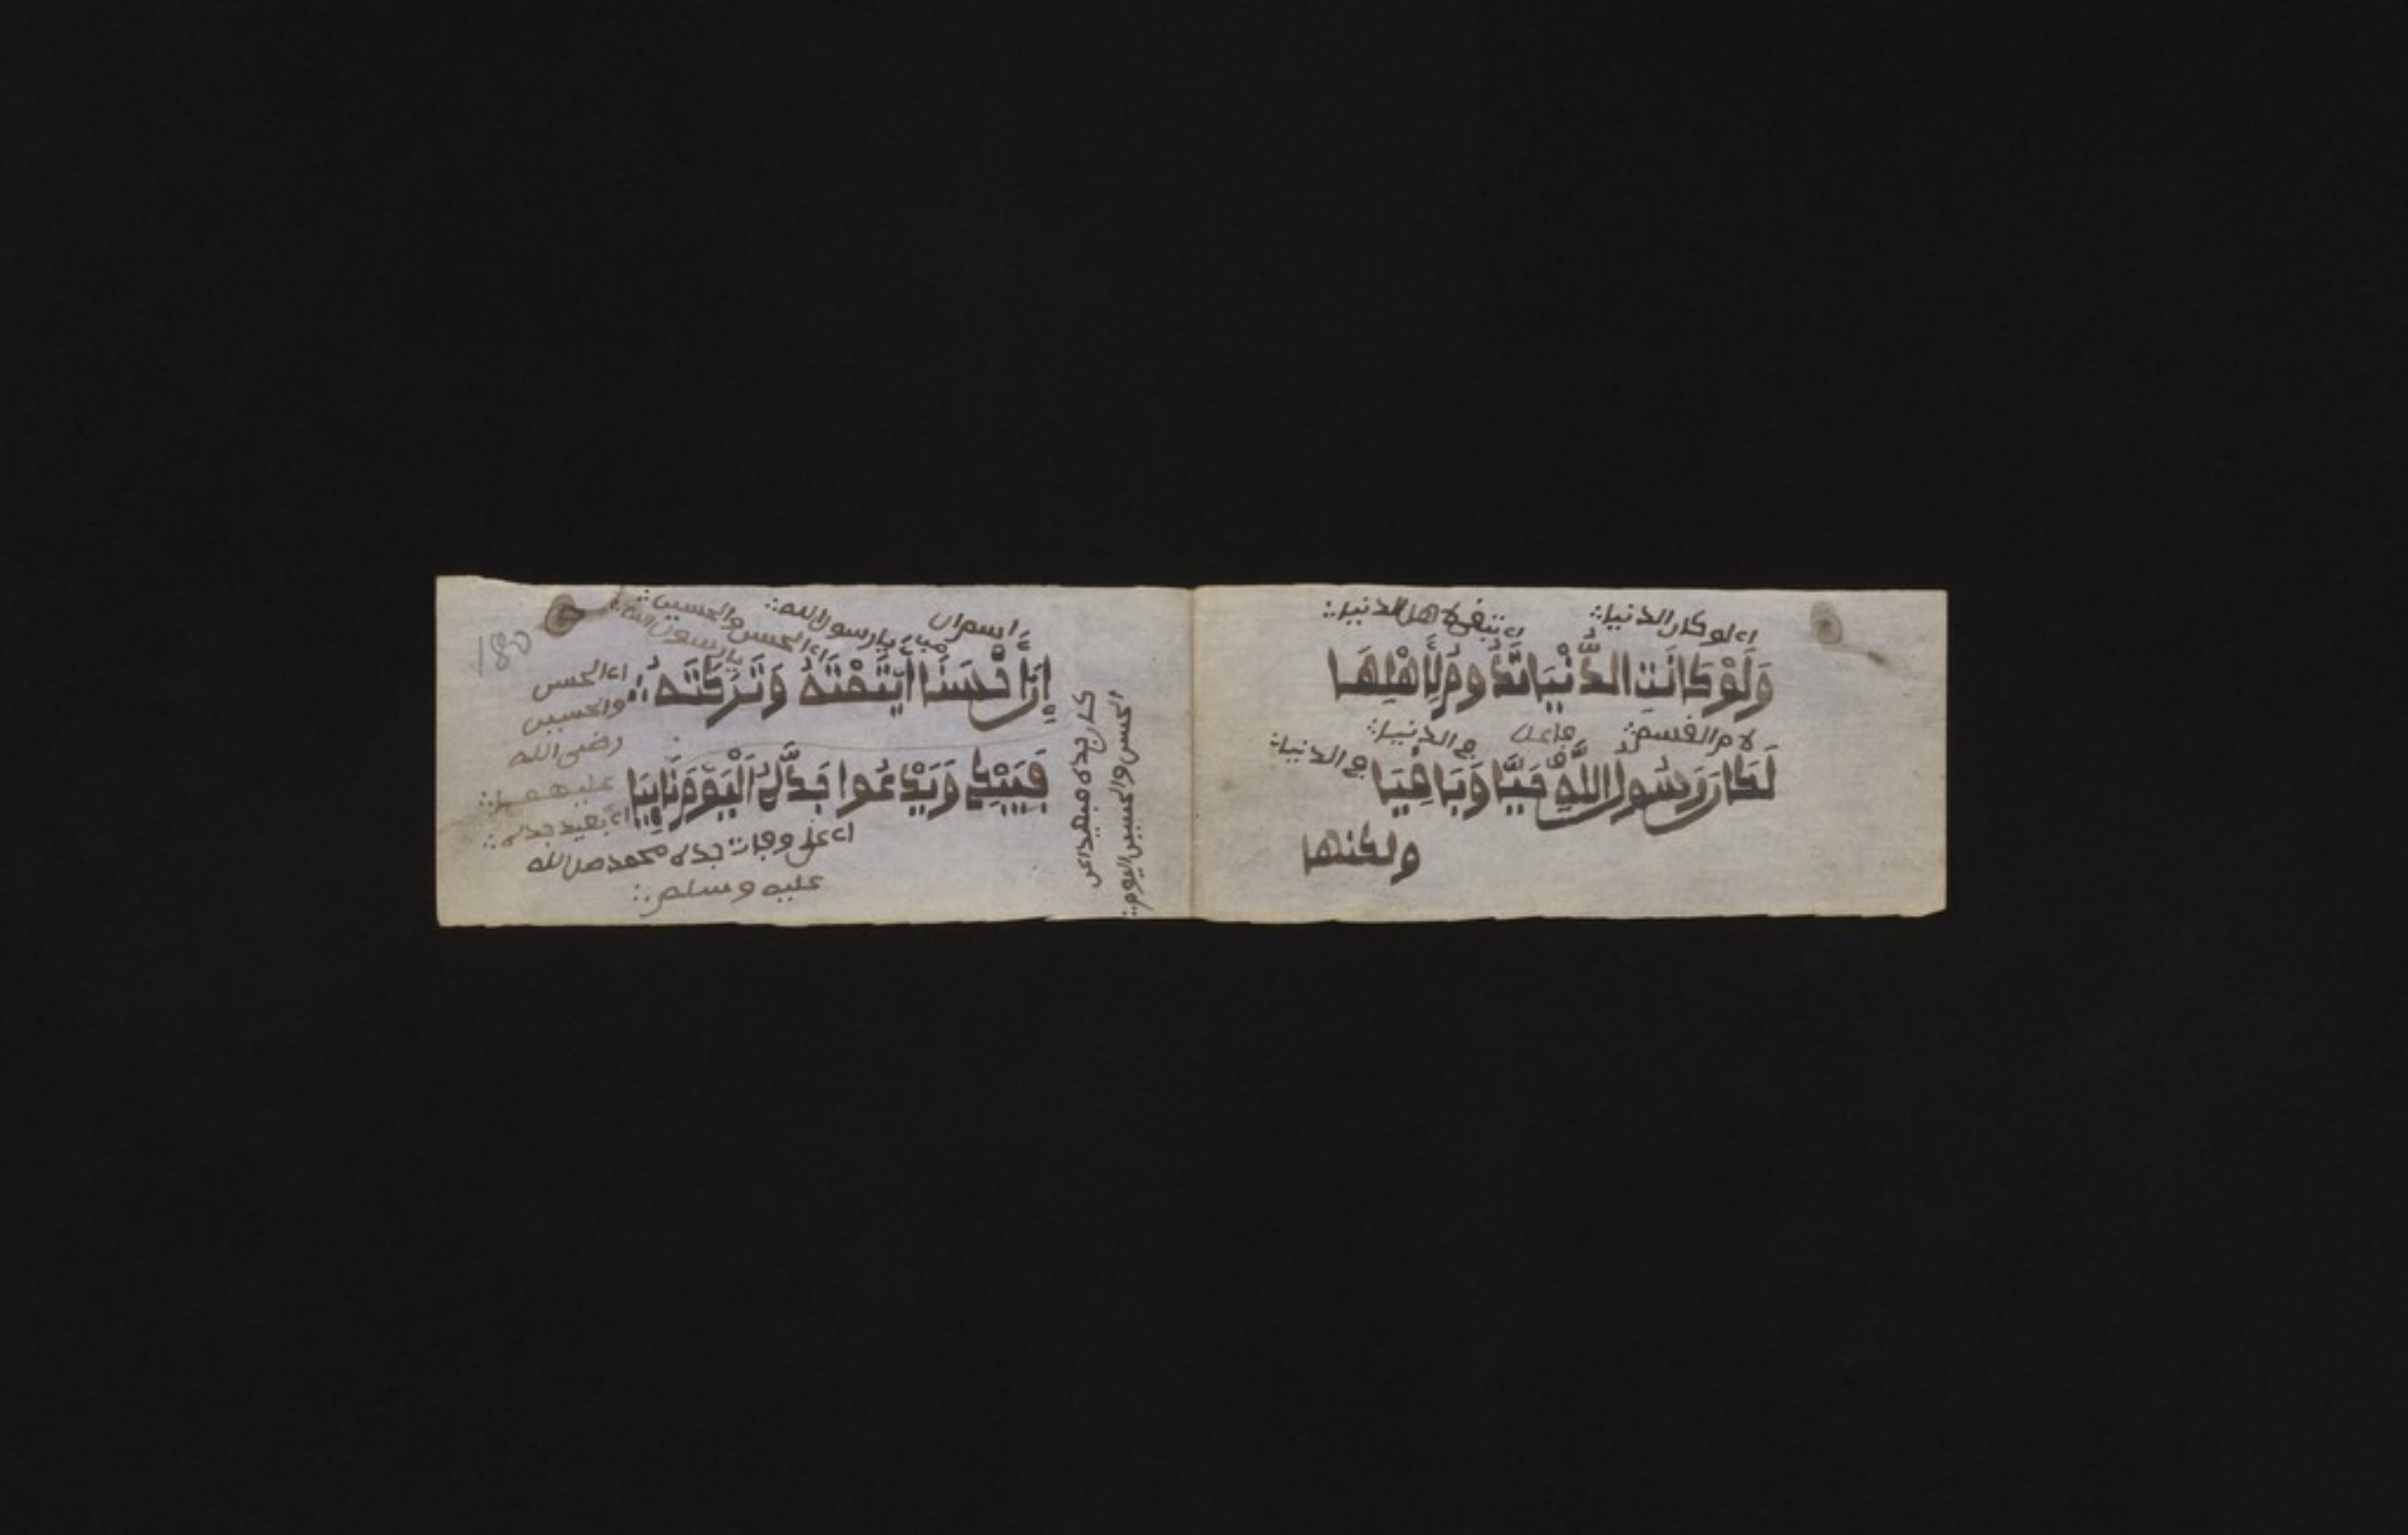 اي لو كان الدنيا
اي تبقى لاهل الدنيا
وَلَوْ كَانَتِ الدُّنْيَا تَدُومُ لِأَهْلِهَا
لام القسم
فاعل
في الدنيا
في الدنيا
لَكَانَ رَسُولُ اللَّهِ حَيًّا وَبَاقِيَا
ولكنها
اسم ان
يارسول الله
اي الحسن والحسين
يارسول الله
إِنَّ حَسَنًا أَيْتَمْتَهُ وَتَرَكْتَهُ
اي الحسن
والحسين
رضي الله
عليهما
فَيَبْكِي وَيَدْعُوا جَدَّهُ الْيَوْمَ نَايِيَا
اي بعيد جده
اي على وفات جده محمد صلى الله
عليه وسلم
كان جده
الحسن والحسين اليوم
180